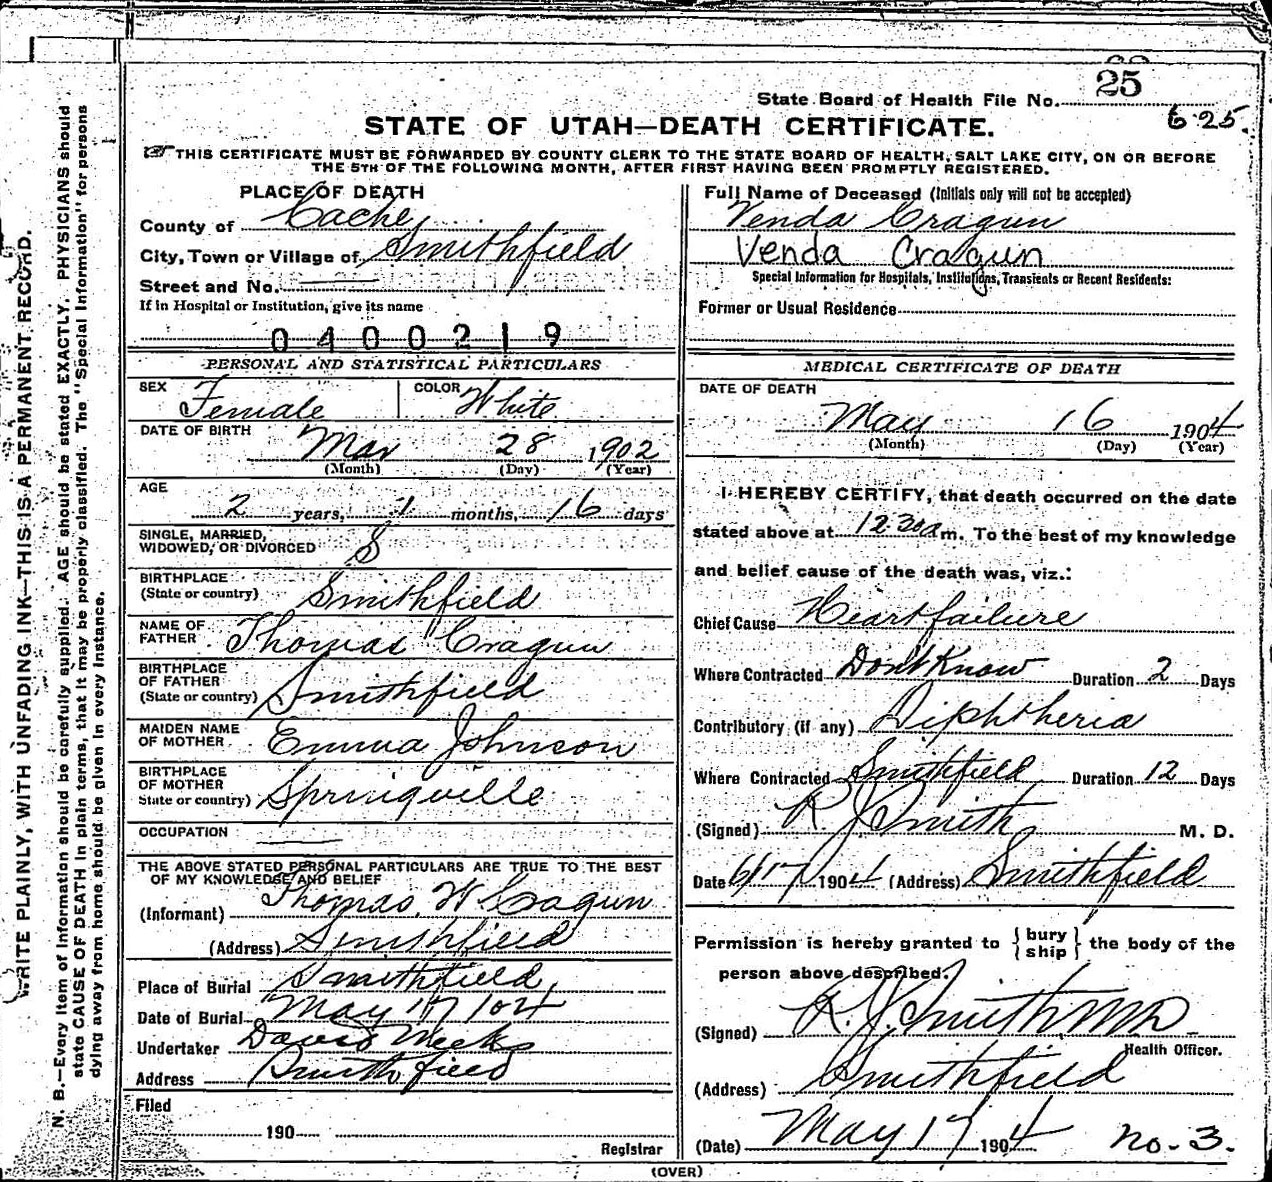 25
State Board of Health File No.
625.
STATE OF UTAH—DEATH CERTIFICATE.
THIS CERTIFICATE MUST BE FORWARDED BY COUNTY CLERK TO THE STATE BOARD OF HEALTH, SALT LAKE CITY, ON OR BEFORE
THE 5TH OF THE FOLLOWING MONTH, AFTER FIRST HAVING BEEN PROMPTLY REGISTERED.
WRITE PLAINLY, WITH UNFADING INK—THIS IS A PERMANENT RECORD.
N. B.—Every item of information should be carefully supplied. AGE should be stated EXACTLY. PHYSICIANS should
state CAUSE OF DEATH in plain terms, that it may be properly classified. The "Special Information" for persons
dying away from home should be given in every instance.
PLACE OF DEATH
County of Cache
City, Town or Village of Smithfield
Street and No.
If in Hospital or Institution, give its name
0400219
PERSONAL AND STATISTICAL PARTICULARS
SEX Female COLOR White
DATE OF BIRTH
Mar 28 1902
(Month) (Day) (Year)
AGE
2 years, 1 months, 16 days
SINGLE, MARRIED,
WIDOWED, OR DIVORCED S
BIRTHPLACE
(State or country) Smithfield
NAME OF
FATHER Thomas Cragun
BIRTHPLACE
OF FATHER
(State or country) Smithfield
MAIDEN NAME
OF MOTHER Emma Johnson
BIRTHPLACE
OF MOTHER
State or country) Springville
OCCUPATION
THE ABOVE STATED PERSONAL PARTICULARS ARE TRUE TO THE BEST
OF MY KNOWLEDGE AND BELIEF
(Informant) Thomas W Cragun
(Address) Smithfield
Place of Burial Smithfield
Date of Burial May 17 104
Undertaker David Weeks
Address Smithfield
Filed
190
Registrar
Full Name of Deceased (Initials only will not be accepted)
Venda Cragun
Venda Cragun
Special Information for Hospitals, Institutions, Transients or Recent Residents:
Former or Usual Residence
MEDICAL CERTIFICATE OF DEATH
DATE OF DEATH
May 16 1904
(Month) (Day) (Year)
I HEREBY CERTIFY, that death occurred on the date
stated above at 12 30 a m. To the best of my knowledge
and belief cause of the death was, viz.:
Chief Cause Heart failure
Where Contracted Don't Know Duration 2 Days
Contributory (if any) Diphtheria
Where Contracted Smithfield Duration 12 Days
(Signed) R. J Smith M. D.
Date 6/17 1904 (Address) Smithfield
Permission is hereby granted to { bury ship } the body of the
person above described.
(Signed) R. J. Smith MD
Health Officer.
(Address) Smithfield
(Date) May 17 1904 no. 3.
(OVER)